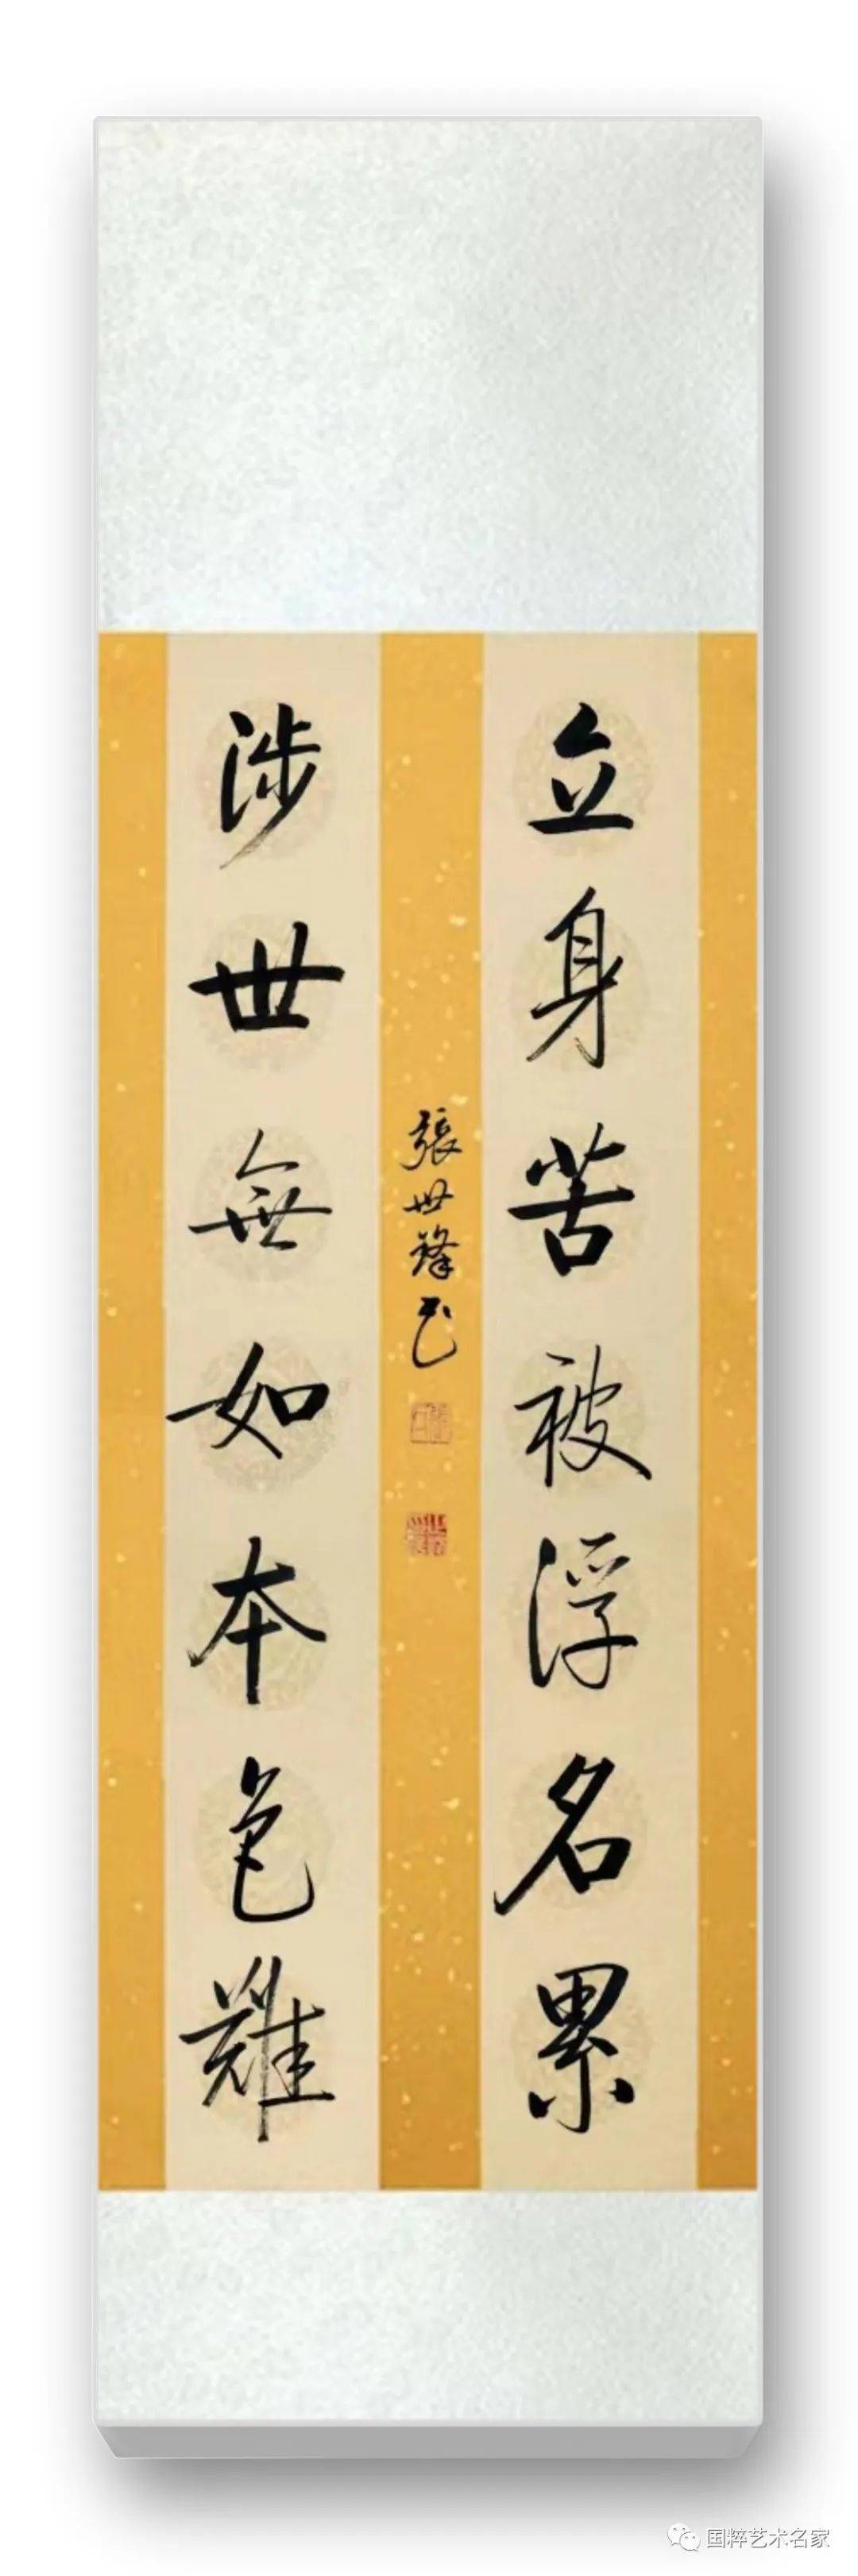 立身苦被浮名累
涉世無如本色難
張世鋒书
国粹艺术名家